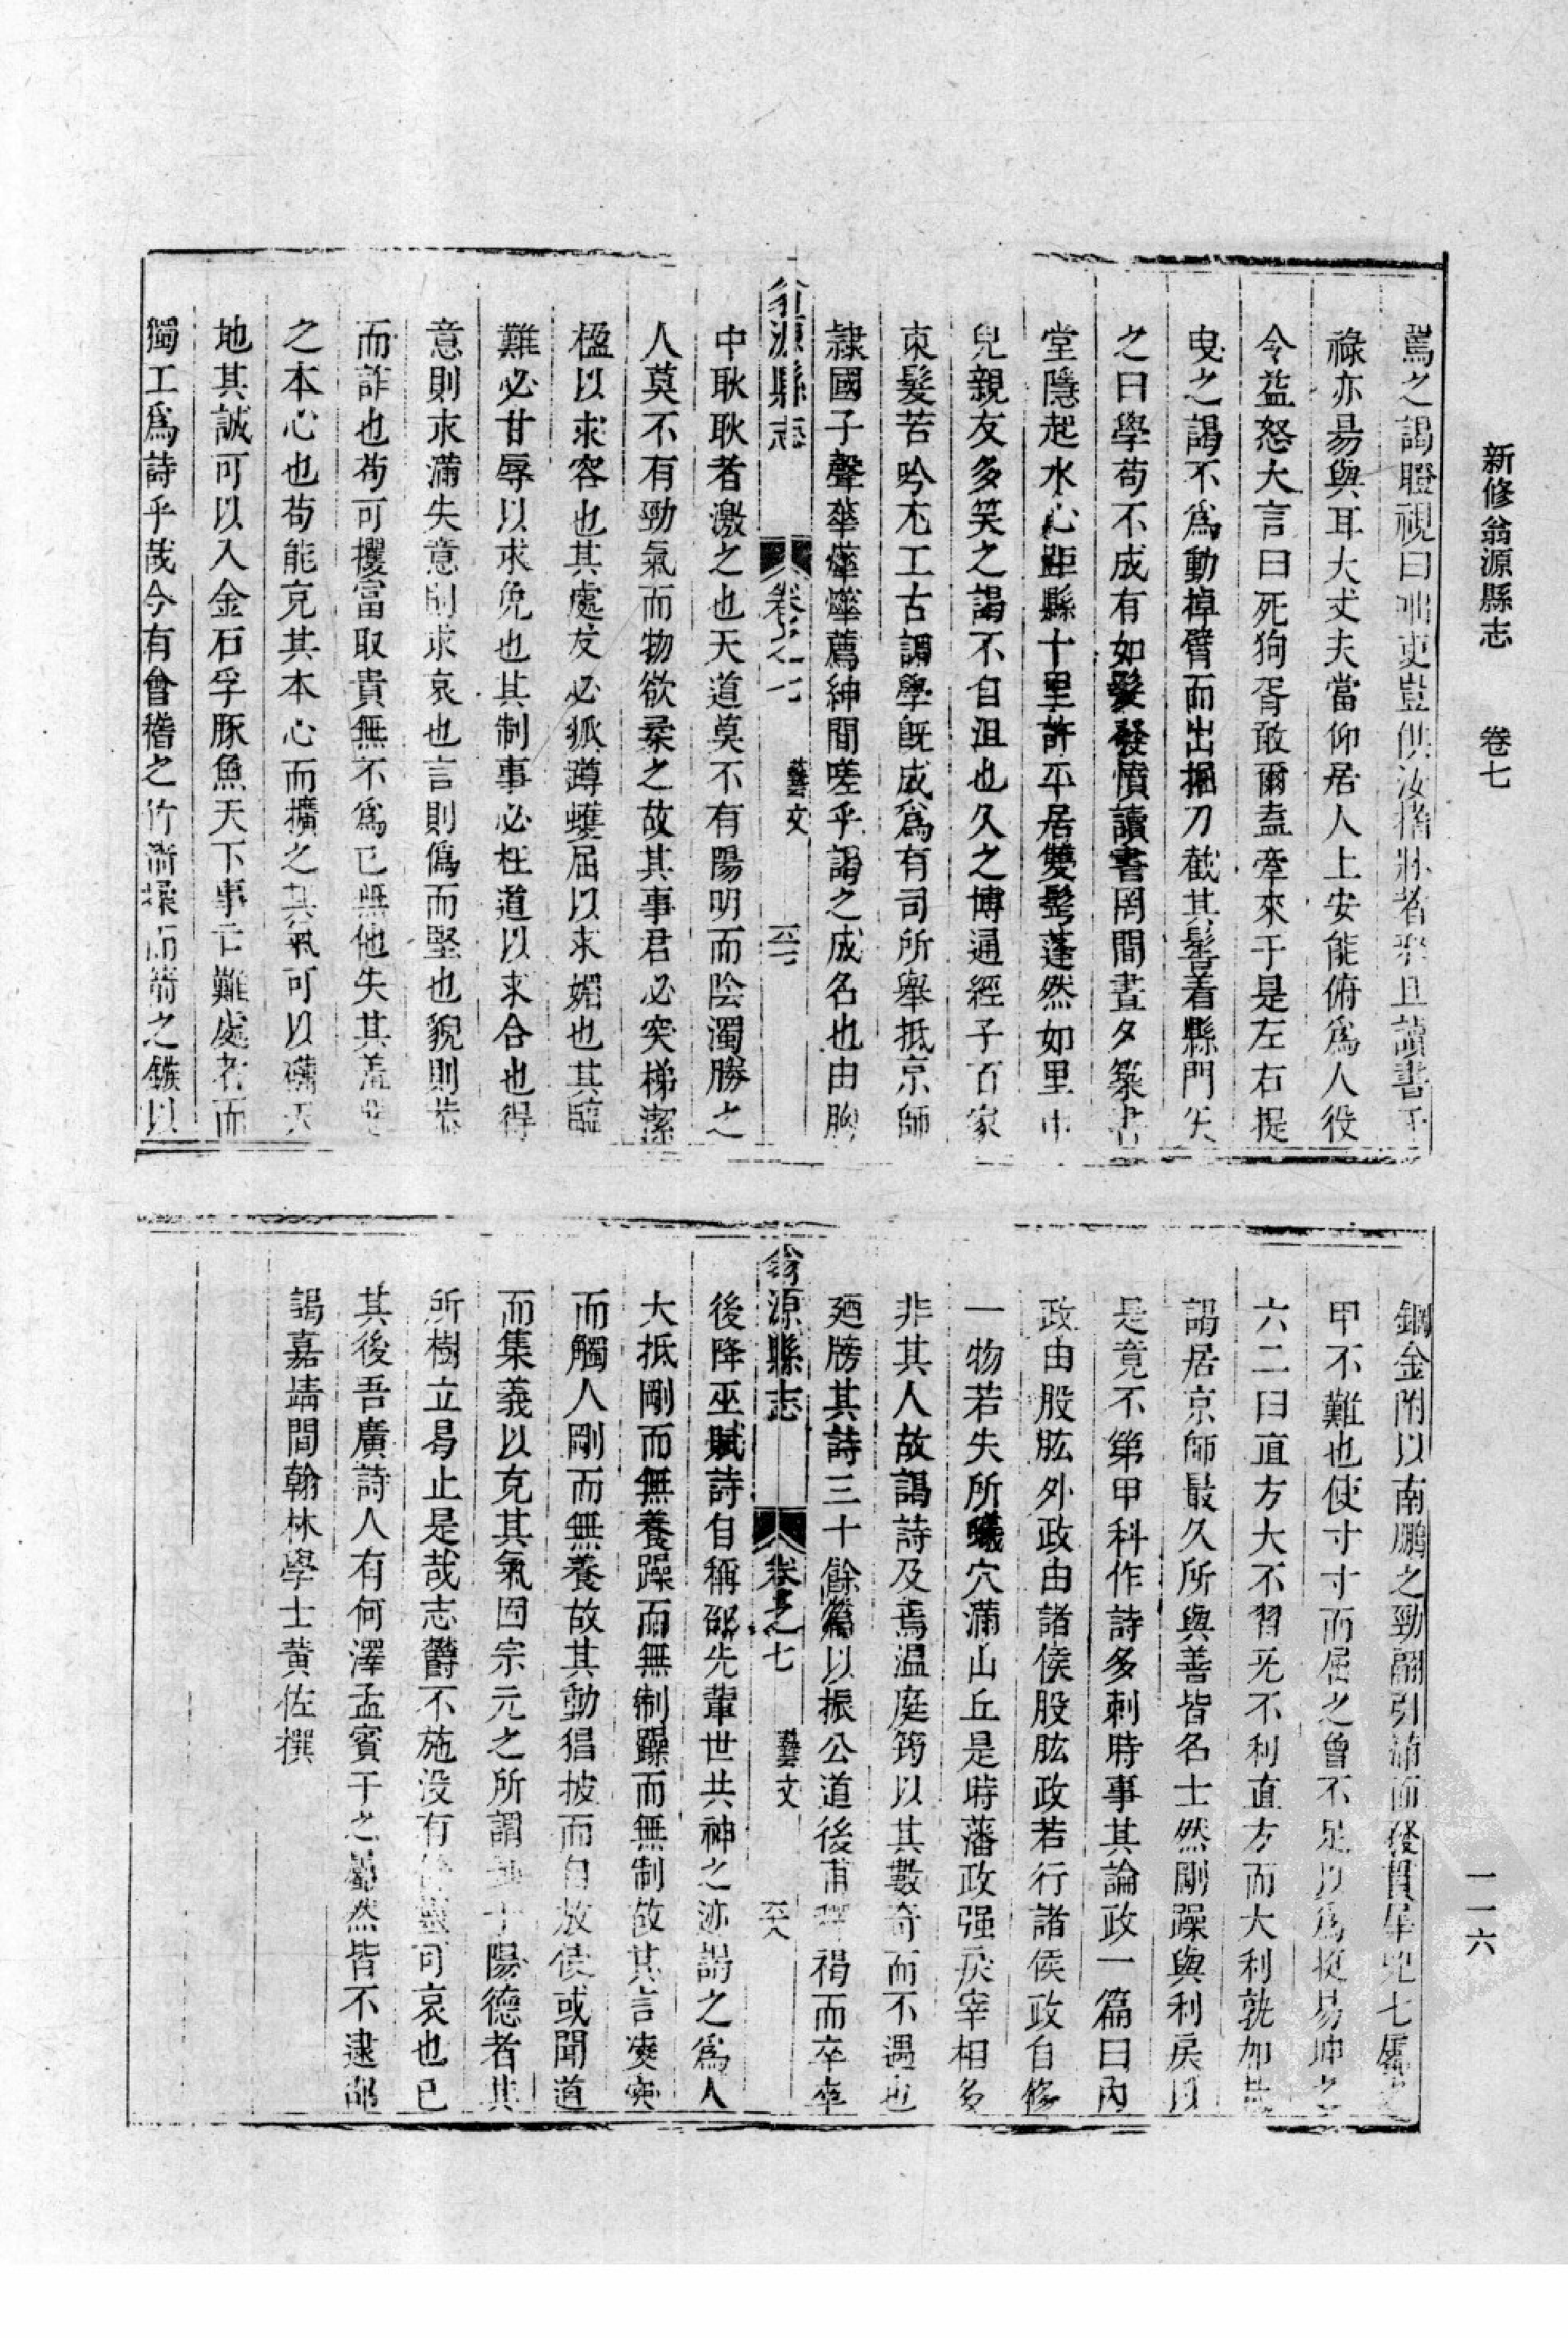 新修翁源縣志　卷七
一一六
罵之謁瞪視曰咄吏豈供汝指
祿亦易與耳大丈夫當仰居人上安能俯爲人役
令益怒大言曰死狗胥敢爾盍牽來于是左右捉
曳之謁不爲動掉臂而出掘刀截其髻着縣門矢
之曰學苟不成有如髮發憤讀書罔間晝夕築書
堂隱起水心距縣十里許平居雙髻蓬然如里中
兒親友多笑之謁不自沮也久之博通經子百家
束髮苦吟尤工古調學旣成爲有司所舉抵京師
隷國子聲華燁燁薦紳間嗟乎謁之成名也由胸
翁源縣志　卷之七　藝文　至七
中耿耿者激之也天道莫不有陽明而陰濁勝之
人莫不有勁氣而物欲柔之故其事君必突梯潔
楹以求容也其處友必狐蹲蠖屈以求媚也其臨
難必甘辱以求免也其制事必枉道以求合也得
意則求滿失意則求哀也言則僞而堅也貌則恭
而詐也苟可攫富取貴無不爲已無他失其羞
之本心也苟能克其本心而擴之其氣可以
地其誠可以入金石孚豚魚天下事亡難處者而
獨工爲詩乎哉今有會稽之竹
鋼金附以南鵬之勁翮引滿而發貫犀兕七屬之
甲不難也使寸寸而屈之曾不足以爲挺易坤之
六二曰直方大不習无不利直方而大利孰加
謁居京師最久所與善皆名士然剛躁與利戾以
是竟不第甲科作詩多刺時事其論政一篇曰內
政由股肱外政由諸侯股肱政若行諸侯政自修
一物若失所蟻穴滿山丘是時藩政强戾宰相多
非其人故謁詩及焉温庭筠以其數奇而不遇也
廼牓其詩三十餘篇以振公道後甫釋褐而卒卒
翁源縣志　卷之七　藝文　至八
後降巫賦詩自稱邵先輩世共神之迹謁之爲人
大抵剛而無養躁而無制躁而無制故其言凌突
而觸人剛而無養故其動猖披而自放使或聞道
而集義以克其氣固宗元之所謂　于陽德者其
所樹立曷止是哉志鬱不施没有　靈可哀也已
其後吾廣詩人有何澤孟賓于之屬然皆不逮邵
謁嘉靖間翰林學士黄佐撰